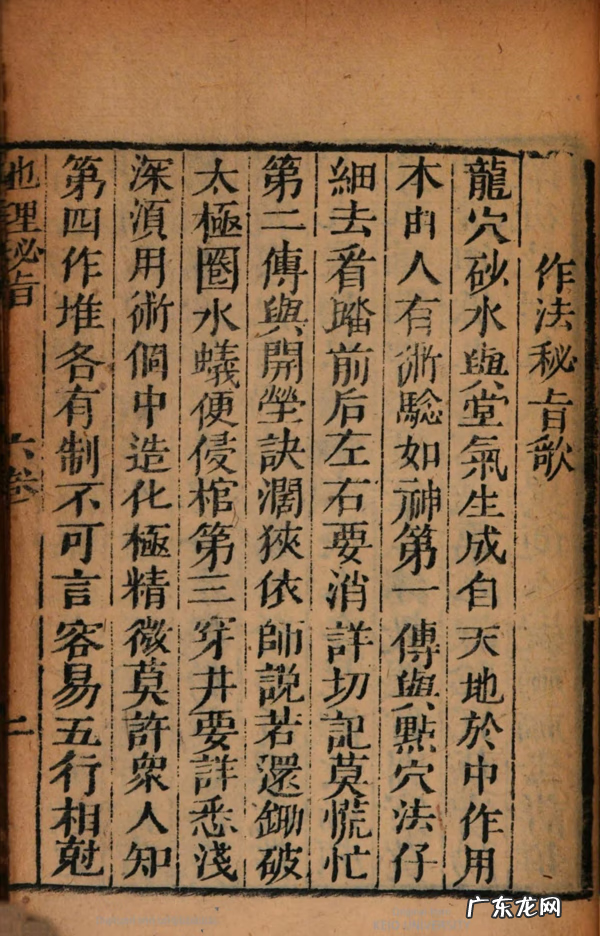 作法秘旨歌
龍穴砂水與堂氣生成自天地於中作用
本由人有術驗如神第一傳與點穴法仔
細去看踏前后左右要消詳切記莫慌忙
第二傳與開塋訣濶狹依師説若還鋤破
太極圈水蟻便侵棺第三穿井要詳悉淺
深湏用術個中造化極精微莫許衆人知
第四作堆各有制不可言容易五行相尅
地理秘旨 六卷 二
广东龙网